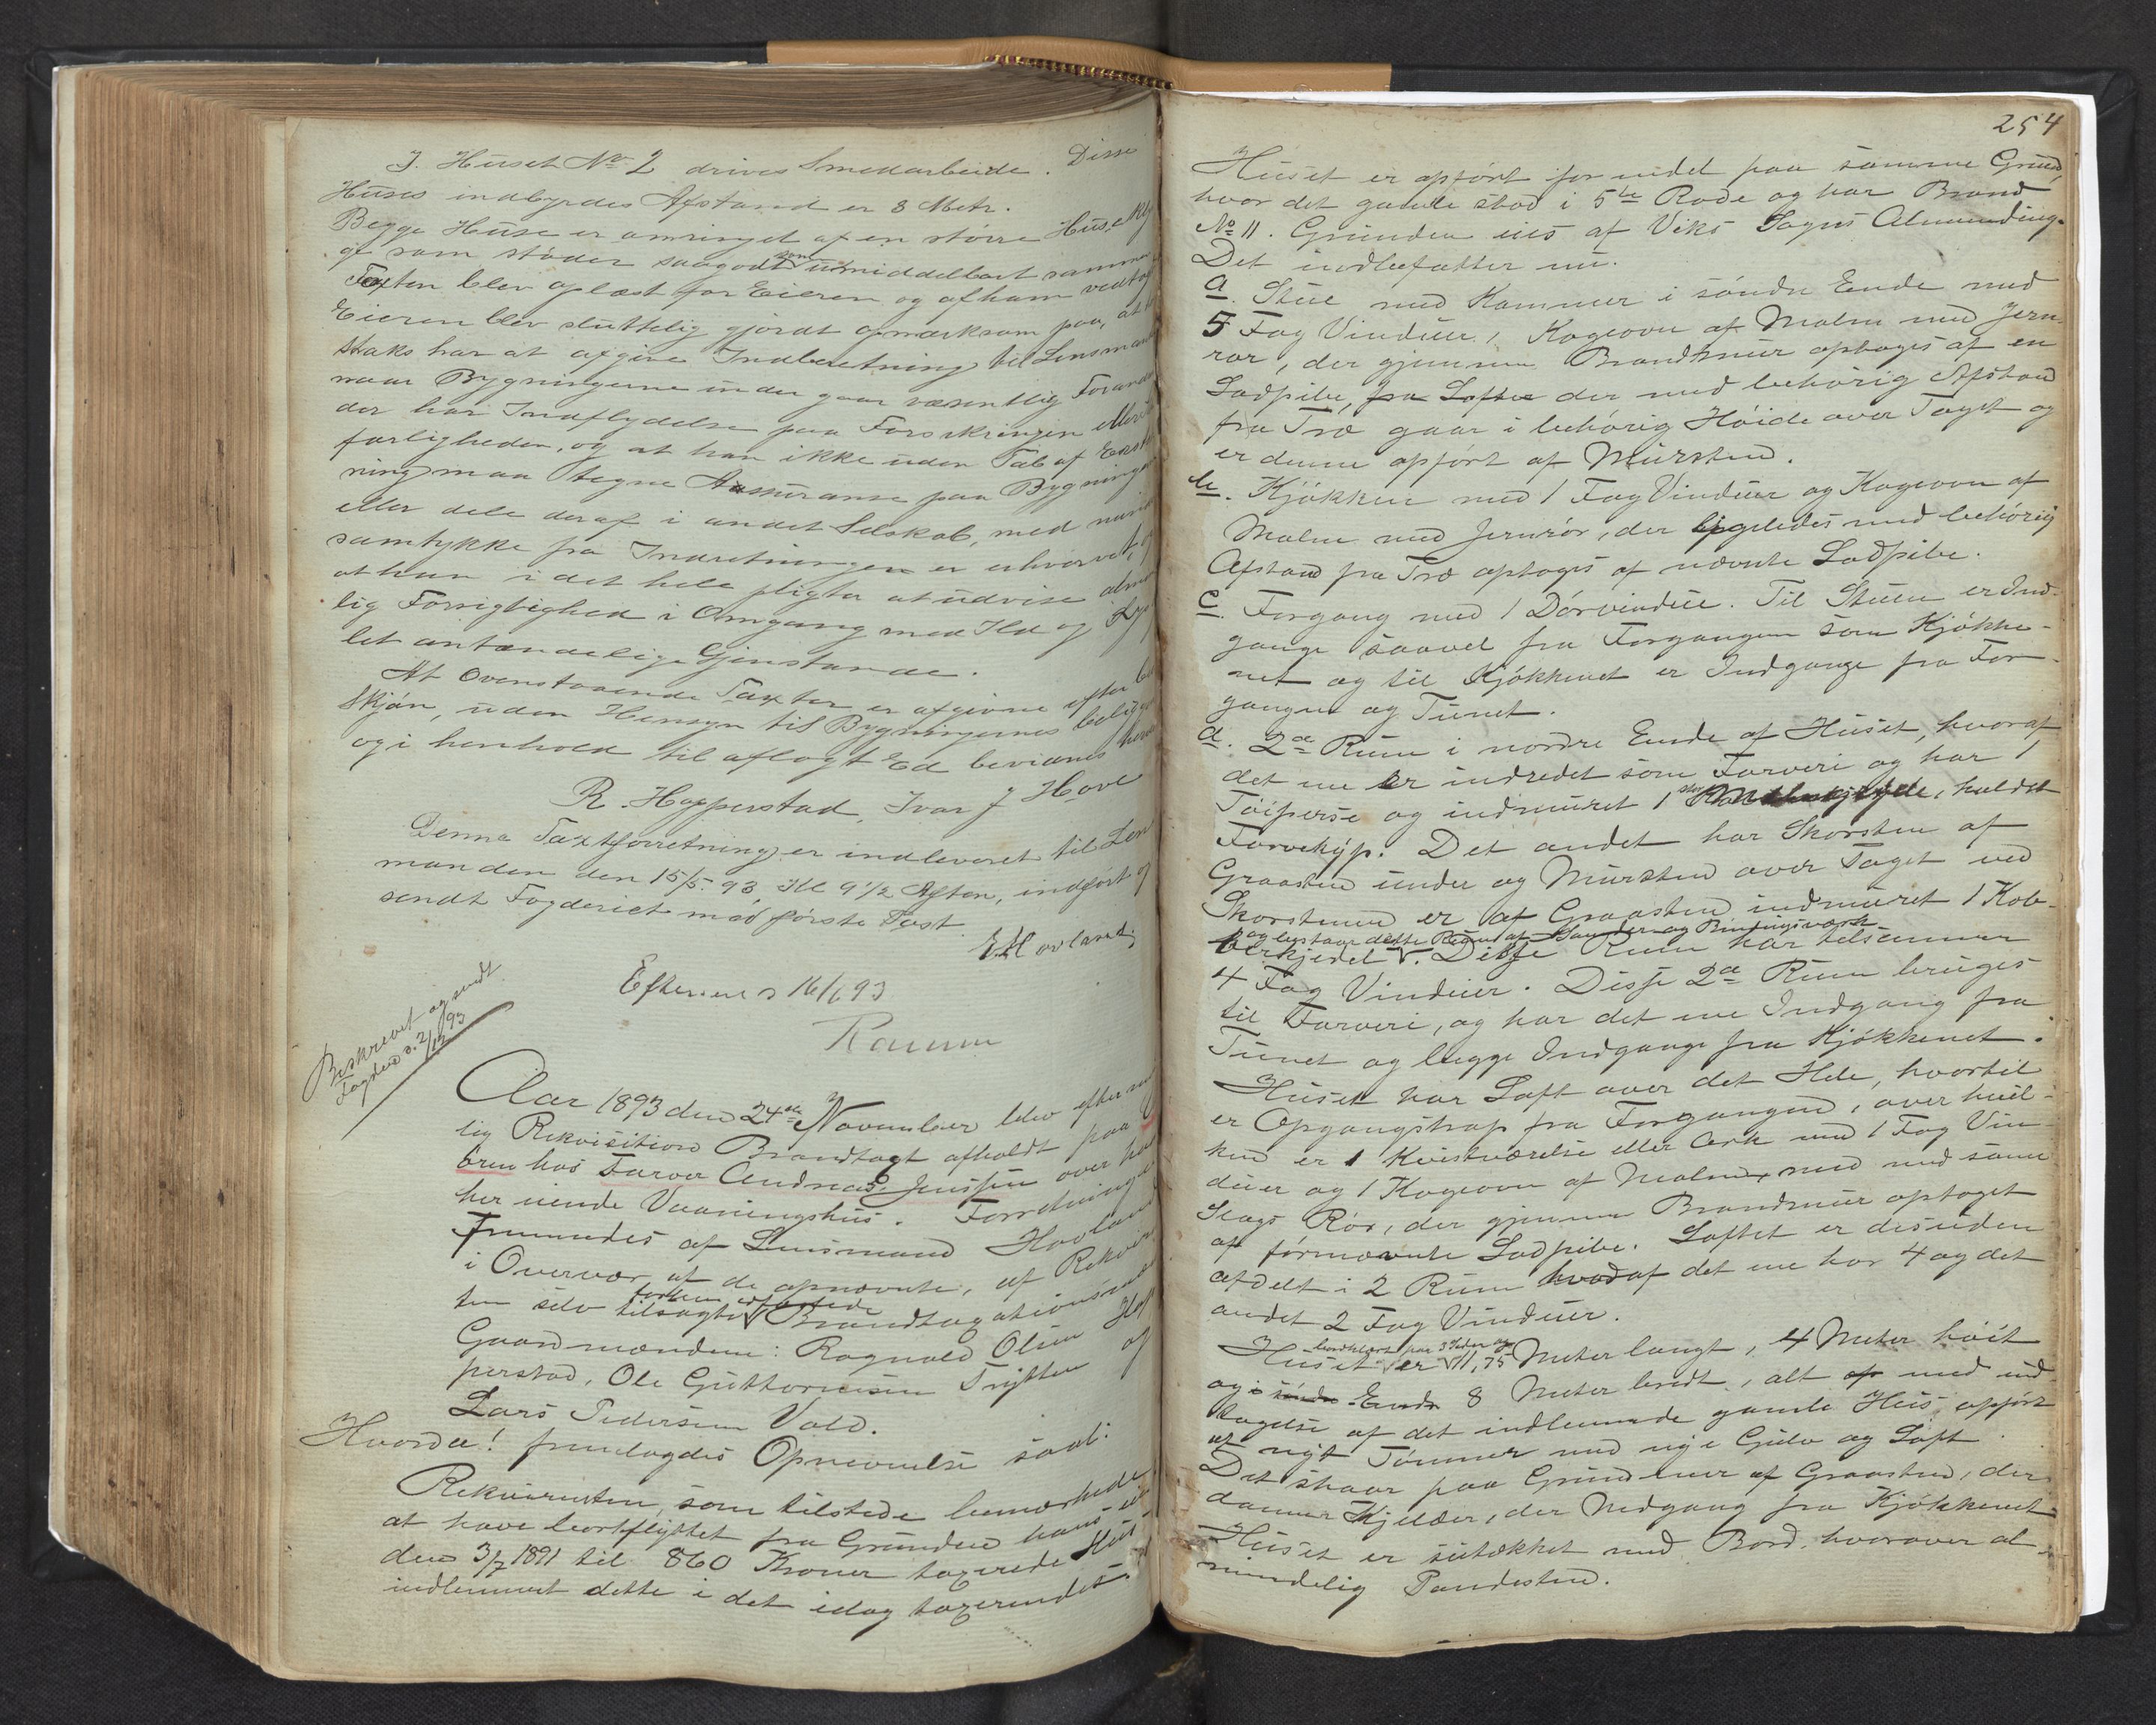 I. Huset No 2 drives Smedarbeide. Disse
Huses indbyrdes Afstand er 8 Metr.
Begge Huse er omringet af en större Hus,
ge som støder saagodt som umiddelbart samme
Taxten blev oplæst for Eieren og af ham vedtog
Eieren blev sluttelig gjordt opmærksom paa, at
straks har at afgive Indberetning til Lensmand
naar Bygningerne under gaar væsentlig Forand
der har Indflydelse paa Forsikringen eller
farligheden, og at han ikke uden Tab af Erst
ning maa tegne Assuranse paa Bygning
eller dele deraf i andet Selskab, med mi
samtykke fra Indretningen er erhvervet, og
at han i det hele pligter at udvise alm
lig Forsigtighed i Omgang med Ild og
let antændelige Gjenstande.
At Ovenstaaende Taxter er afgivne efter
Skjön, uden Hensyn til Bygningernes belig
og i henhold til aflagt Ed bevidnes
R. Hopperstad, Ivar J Hove
Denne Taxtforretning er indleveret til Len
manden den 15/5. 93, Kl 9 1/2 Aften, indført og
sendt Fogderiet med første Post.
E. Hovland
Efterseet 16/6 93
Beskrevet og sendt
Fogden d. 2/12 93
Aar 1893 den 24de November blev efter
lig Rekvisition Brandtaxt afholdt paa
ören hos Farver Andreas Jenssen over
her eiende Vaaningshus. Forretningen
fremmedes af Lensmand Hovland
i Overvær af de opnævnte, af Rekvi
ten selv tilsagte Brandtaxations
Gaardmændene: Ragnald Olsen Hop
perstad, Ole Guttormsen Tryttes og
Lars Pedersen Vold.
Hvorda! fremlagdes Opnævnelse saal:
Rekvirenten, som tilstede bemærkede
at have bortflyttet fra Grunden hans
den 3/7 1891 til 860 Kroner taxerede Hus
indlemmet dette i det idag taxerendes.
254
Huset er opfört for en del paa samme Grund,
hvor det gamle stod i 5te Rode og har Brand
No 11. Grunden eies af Viks Sogns Almending.
Det indbefatter nu.
a. Stue med Kammer i søndre Ende med
5 Fag Vinduer, 1 Kogeovn af Malm med Jern
rør, der gjennem Brandmur optages af en
Lodpibe, fra Loftet der med behörig Afstand
fra Træ gaar i behörig Höide over Taget og
er denne opfört af Mursten.
b. Kjökken med 1 Fag Vinduer og Kogeovn af
Malm med Jernrör, der ligeledes med behörig
Afstand fra Træ optages af nævnte Lodpibe.
c. Forgang med 1 Dörvindue. Til Stuen er Ind-
gange saavel fra Forgangen som Kjökke-
net og til Kjökkenet er Indgange fra For-
gangen og Tunet.
d. 2de Rum i nordre Ende af Huset, hvoraf
det ene er indredet som Farveri og har 1
Töiperse og indmuret 1 stor kaldet
Farvekyp. Det andet har Skorsten af
Graasten under og Mursten over Taget ved
Skorstenen er af Graasten indmuret 1 Kob-
og bestaar dette Rum af Sander og Bindingsværk
berkjedel. Disse Rum har tilsammen
4 Fag Vinduer. Disse 2de Rum bruges
til Farveri, og har det ene Indgang fra
Tunet og begge Indgange fra Kjökkenet.
Huset har Loft over det Hele, hvortil
er Opgangstrap fra Forgangen, over hvil-
ken er 1 Kvistværelse eller Ark med 1 Fag Vin-
duer og 1 Kogeovn af Malm med samme
Slags Rör, der gjennem Brandmur optaget
af förnævnte Lodpibe. Loftet er desuden
afdelt i 2 Rum hvoraf det ene har 4 og det
andet 2 Fag Vinduer.
bordklædt paa 3 Sider og
Huset er 11,75 Meter langt, 4 Meter höit
og i söndre Ende 8 Meter bredt, alt af med ind
tagelse af det indlemmede gamle Hus, opfört
af nyt Tömmer med nye Gulv og Loft.
Det staar paa Grundmur af Graasten, der
danner Kjelder, der Nedgang fra Kjökkenet.
Huset er sutækket med Bord, hvorover al-
mindelig Pandesten.